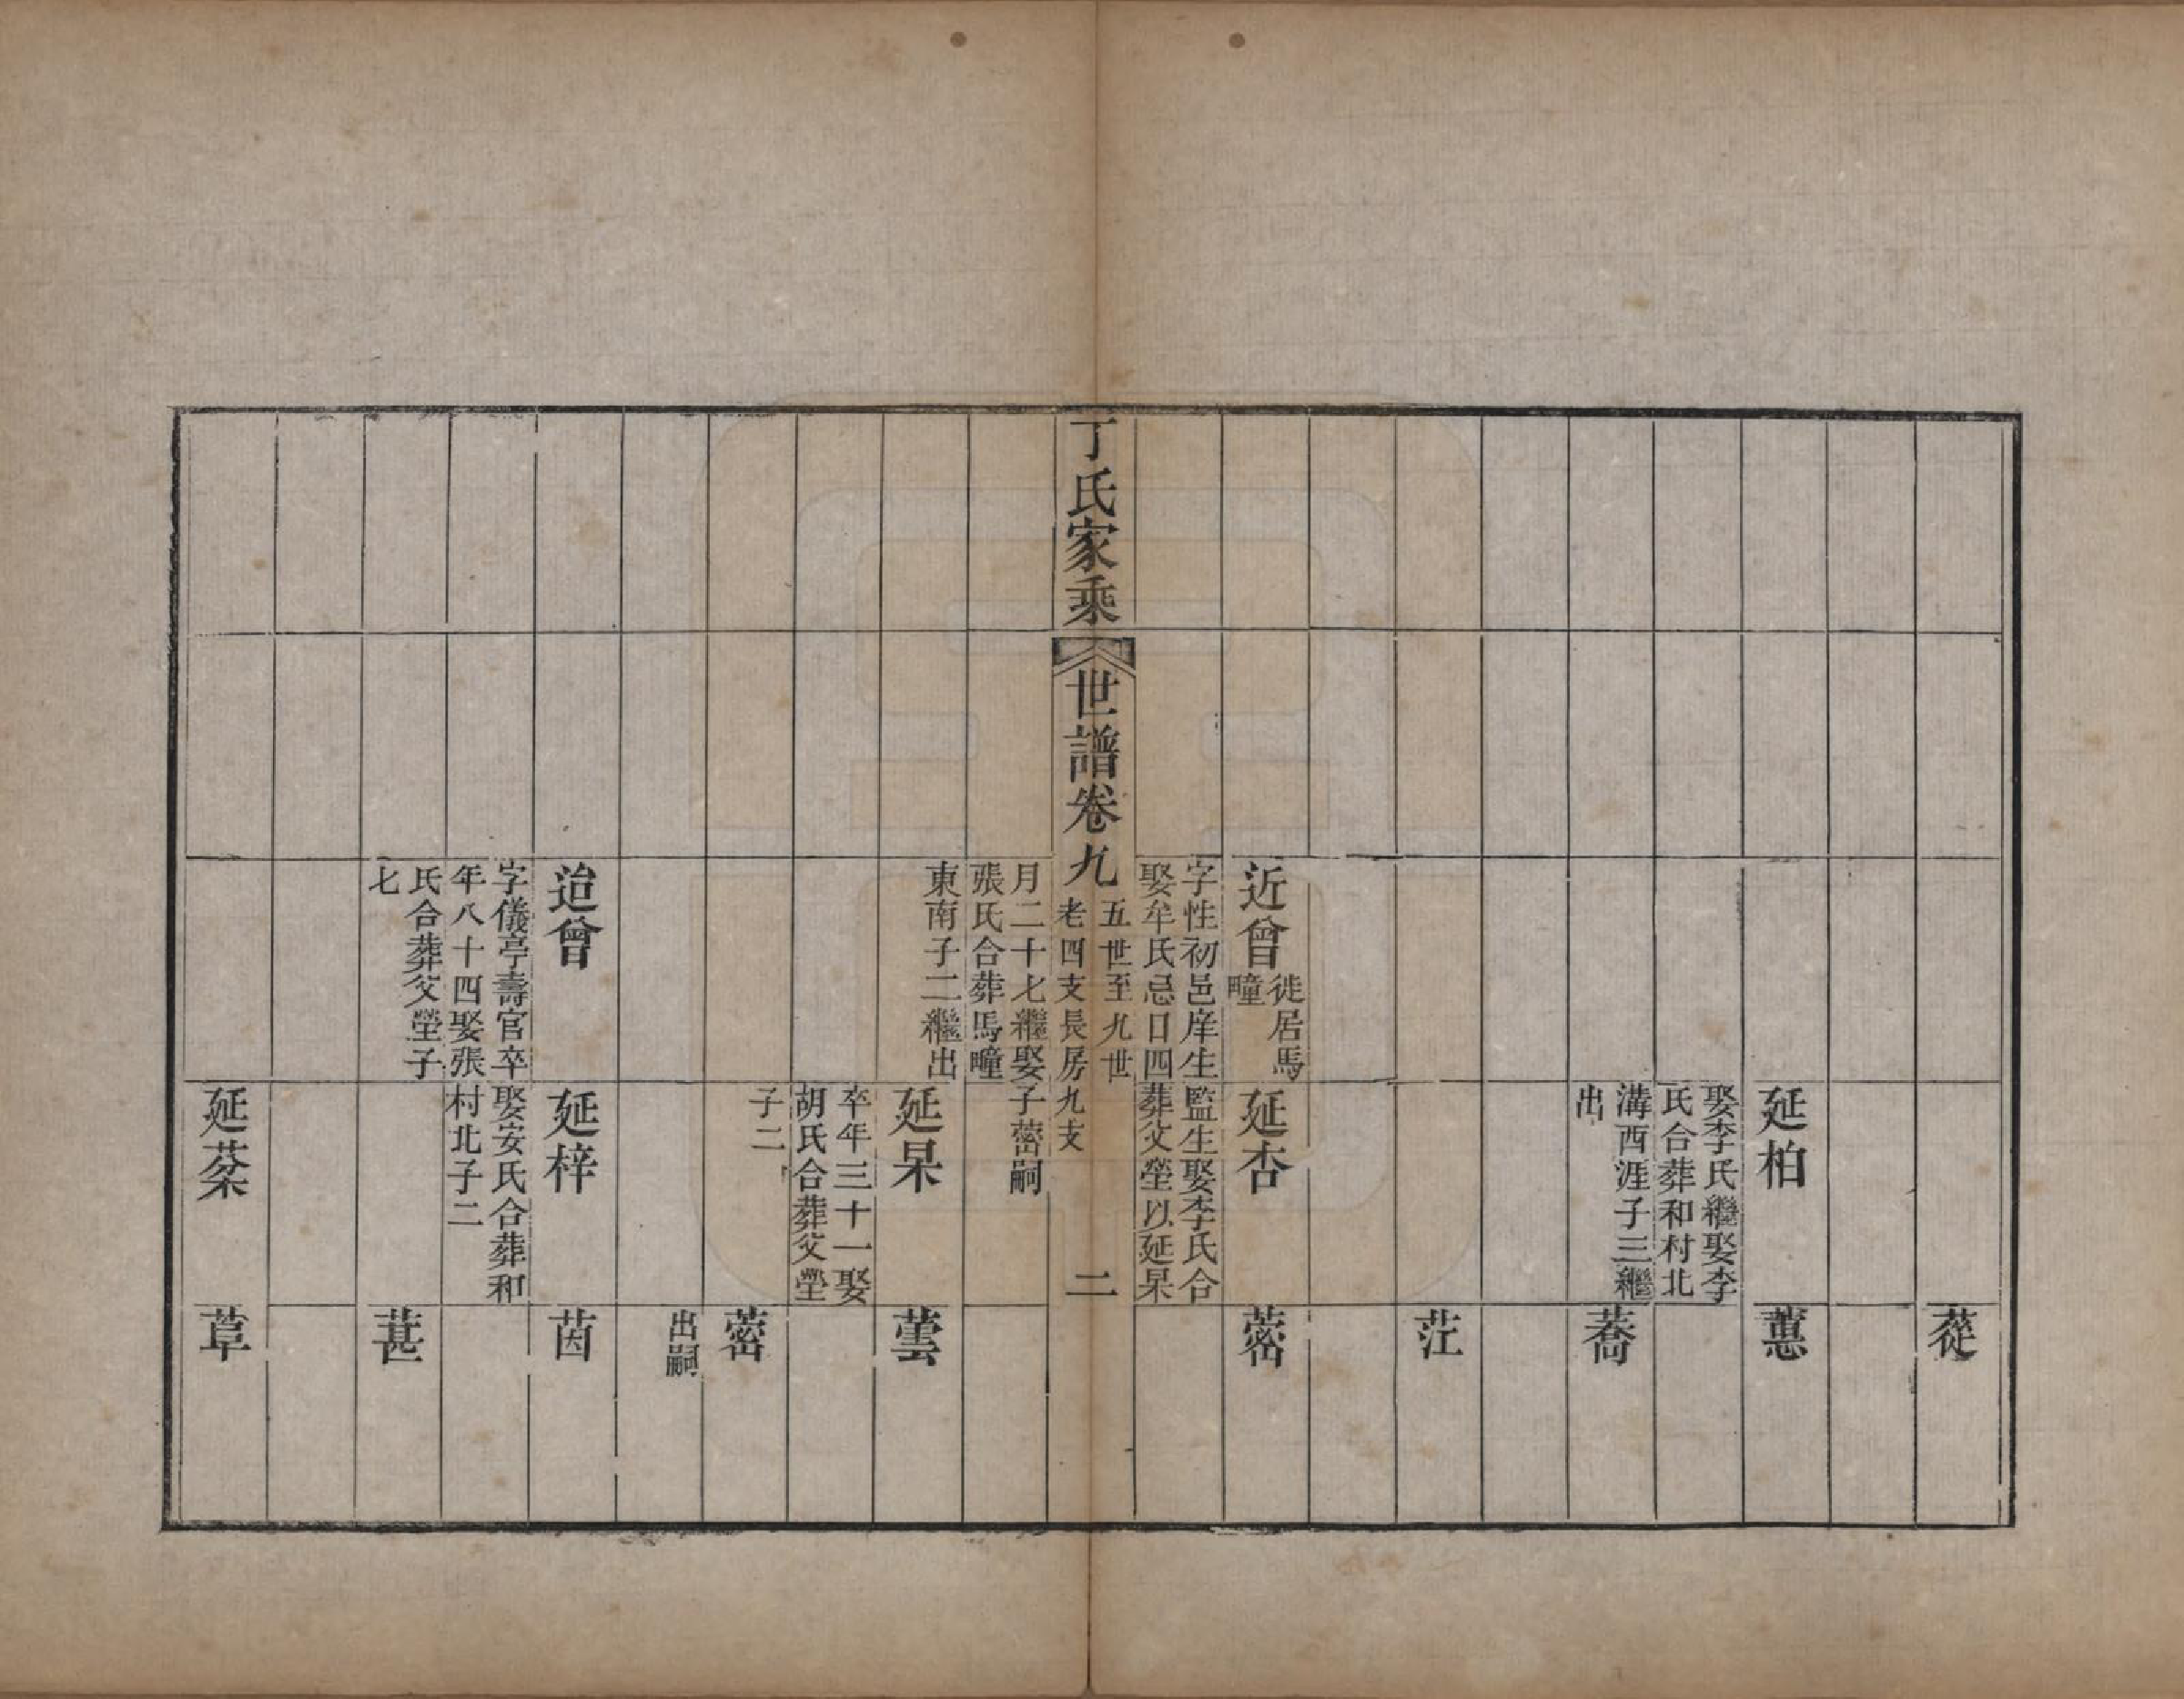 蓯
延柏
娶李氏繼娶李
氏合葬和村北
溝西涯子三繼
出
蕙
蕎
茳
近曾
徙居馬
疃
字性初邑庠生
娶牟氏忌日四
月二十七繼娶
張氏合葬馬疃
東南子二繼出
延杏
監生娶李氏合
葬父塋以延杲
子蔤嗣
蔤
丁氏家乘
世譜卷九
五世至九世
老四支長房九支
二
延杲
卒年三十一娶
胡氏合葬父塋
子二
蕓
蔤
出嗣
迨曾
字儀亭壽官卒
年八十四娶張
氏合葬父塋子
七
延梓
娶安氏合葬和
村北子二
茵
葚
延棻
葦